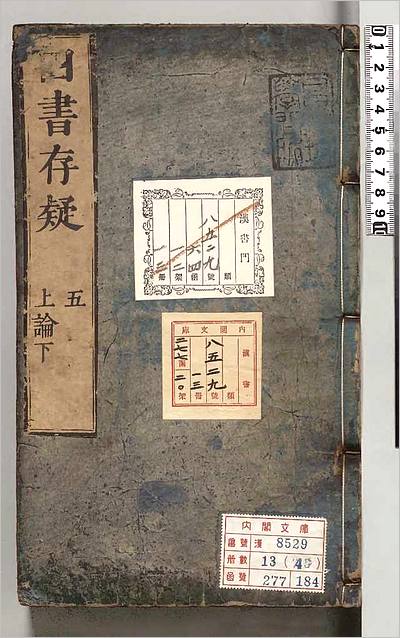 四書存疑
五
上論下
漢書門
類
八五二九號
六四函
一二架
内閣文庫
漢書
類
八五二九號
一三冊
二七七函
二〇架
内閣文庫
番號 漢 8529
冊數 13
函號 277 184
0 1 2 3 4 5 6 7 8 9 10